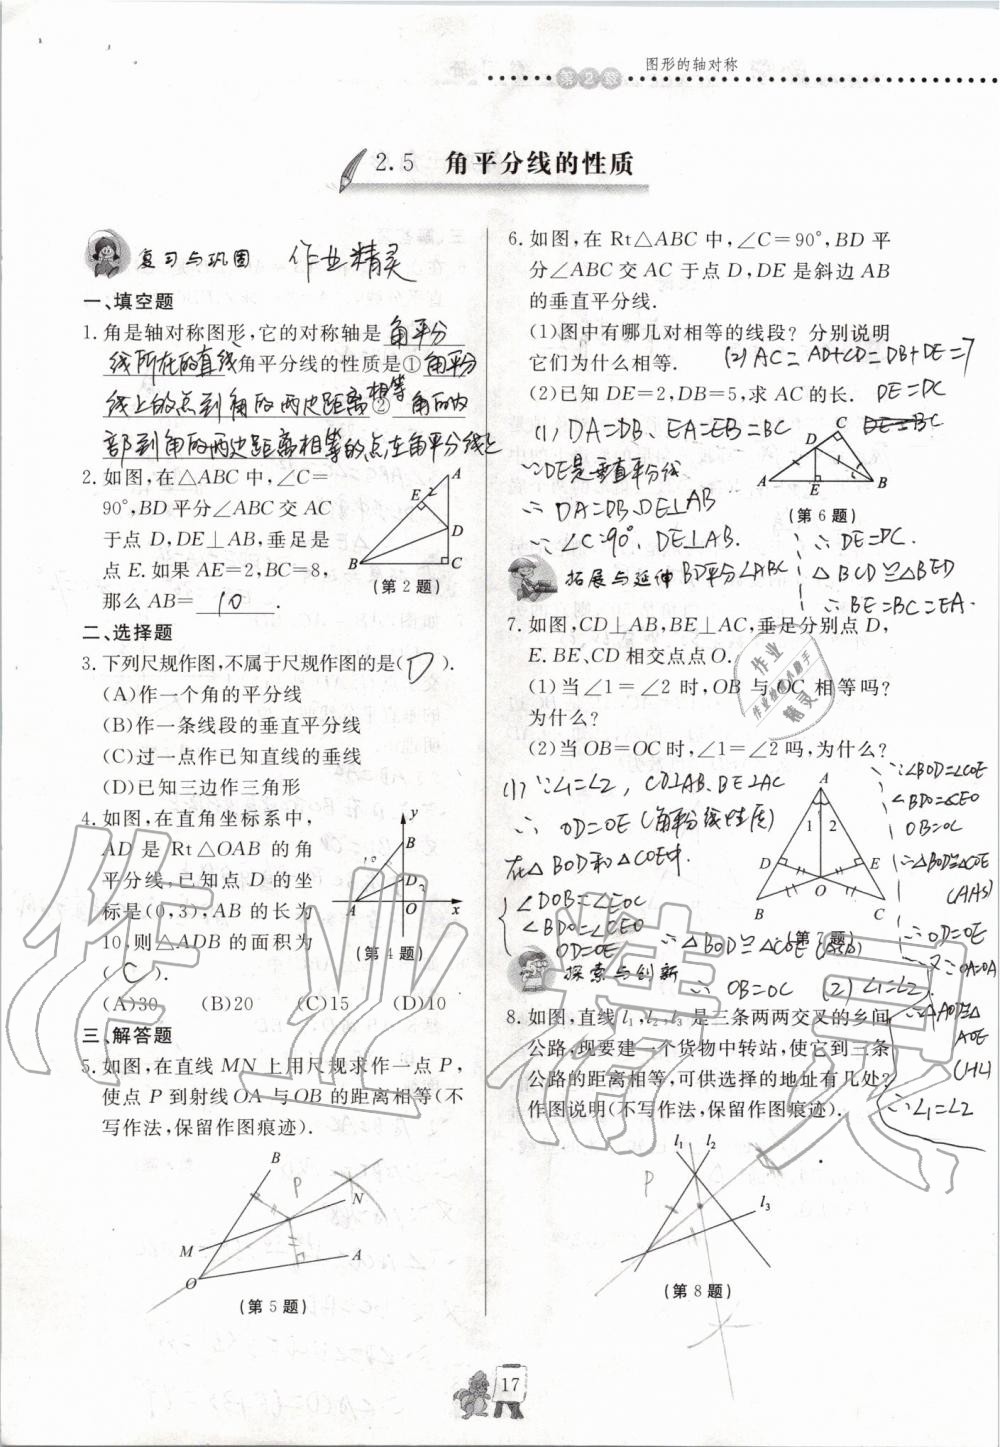 图形的轴对称
第2章
2.5 角平分线的性质
复习与巩固 作业精灵
一、填空题
1. 角是轴对称图形,它的对称轴是 角平分
线所在的直线角平分线的性质是① 角平分
线上的点到角的两边距离相等② 角的内
部到角的两边距离相等的点在角平分线上
2. 如图,在△ABC中,∠C=
90°,BD平分∠ABC交AC
于点D,DE⊥AB,垂足是
点E.如果AE=2,BC=8,
那么AB= 10 .
A
E 2
D
B
C
(第2题)
二、选择题
3. 下列尺规作图,不属于尺规作图的是( D ).
(A)作一个角的平分线
(B)作一条线段的垂直平分线
(C)过一点作已知直线的垂线
(D)已知三边作三角形
4. 如图,在直角坐标系中,
AD是Rt△OAB的角
平分线,已知点D的坐
标是(0,3),AB的长为
10,则△ADB的面积为
( C ).
(A)30 (B)20 (C)15 (D)10
y
B
10
D 3
A O x
(第4题)
三、解答题
5. 如图,在直线MN上用尺规求作一点P,
使点P到射线OA与OB的距离相等(不
写作法,保留作图痕迹).
B
P
N
M
A
O
(第5题)
6. 如图,在Rt△ABC中,∠C=90°,BD平
分∠ABC交AC于点D,DE是斜边AB
的垂直平分线.
(1)图中有哪几对相等的线段?分别说明
它们为什么相等.
(2) AC=AD+CD=DB+DE=7
(2)已知DE=2,DB=5,求AC的长. DE=DC
(1) DA=DB、EA=EB=BC
DE=BC
∵DE是垂直平分线
∴ DA=DB、DE⊥AB
∵ ∠C=90°, DE⊥AB.
C
D
A E B
(第6题)
∴ DE=DC.
拓展与延伸 BD平分∠ABC
△BCD≌△BED
∴ BE=BC=EA.
7. 如图,CD⊥AB,BE⊥AC,垂足分别点D,
E.BE、CD相交点点O.
(1)当∠1=∠2时,OB与OC相等吗?
为什么?
(2)当OB=OC时,∠1=∠2吗,为什么?
(1) ∵∠1=∠2, CD⊥AB、BE⊥AC
∴ OD=OE(角平分线性质)
在△BOD和△COE中
∠DOB=∠EOC
∠BDO=∠CEO
OD=OE
∴△BOD≌△COE
∴ OB=OC (2) ∠1=∠2.
A
1 2
D E
O
B C
(第7题)
∵∠BOD=∠COE
∠BDO=∠CEO
OB=OC
∴△BOD≌△COE
(AAS)
∴OD=OE
又∵OA=OA
∴△AOD≌△
AOE
(HL)
∴∠1=∠2
作业
精灵
探索与创新
8. 如图,直线l₁,l₂,l₃是三条两两交叉的乡间
公路,现要建一个货物中转站,使它到三条
公路的距离相等,可供选择的地址有几处?
作图说明(不写作法,保留作图痕迹).
l₁ l₂
P
l₃
(第8题)
作业精灵
17